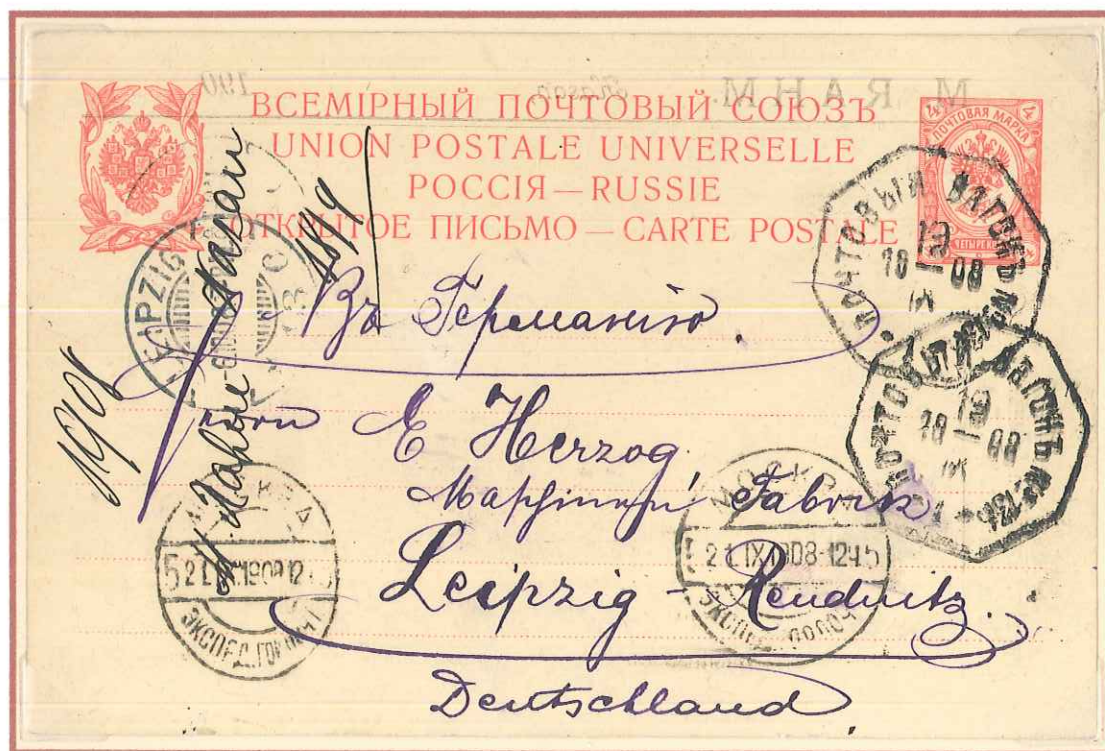 ВСЕМІРНЫЙ ПОЧТОВЫЙ СОЮЗЪ
UNION POSTALE UNIVERSELLE
РОССІЯ — RUSSIE
ОТКРЫТОЕ ПИСЬМО — CARTE POSTALE
4 ПОЧТОВАЯ МАРКА 4
M RAHM
190
ПОЧТОВЫЙ ВАГОНЪ №
19
18 08
ПОЧТОВЫЙ ВАГОНЪ №
19
18 08
LEIPZIG
1908
18/9
Въ Германію.
Herrn E Herzog
Fabrik
Leipzig - Reudnitz.
Deutschland
МОСКВА
5 21 1908 12
ЭКСПЕД. ГОР. ПОЧТ
МОСКВА
21 IX 1908-12Ч 5
ЭКСПЕД.